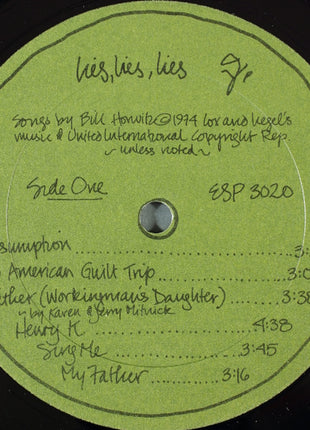 lies, lies, lies
Songs by Bill Horwitz © 1974 Lox and Kegel's
Music & United International Copyright Rep.
~ unless noted ~
Side One ESP 3020
sumption .......... 3:
American Guilt Trip .......... 3:0
ther (Workingman's Daughter) .......... 3:38
~ by Karen & Jerry Mitnick
Henry K. .......... 4:38
Sing Me .......... 3:45
My Father .......... 3:16